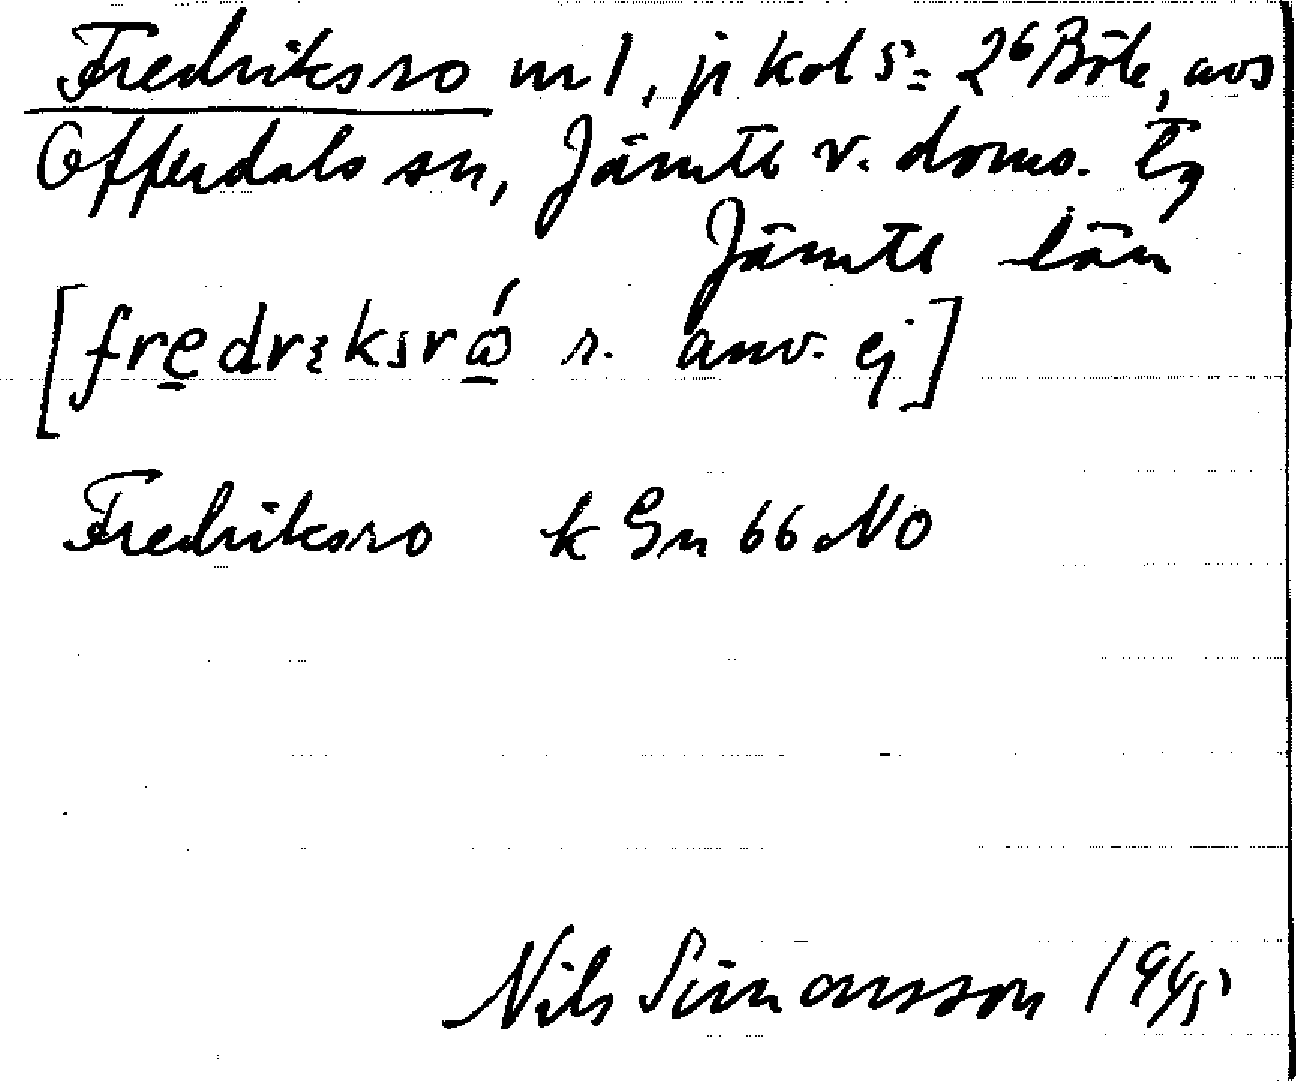 Fredriksro nr 1, ji kol 5 = 2⁶ Böle, avs
Offerdals sn, Jämtl v. doms. lg
Jämtl län
[fredrɩksrώ r. anv. ej]
Fredriksro k Gn 66 NO
Nils Simonsson 1945